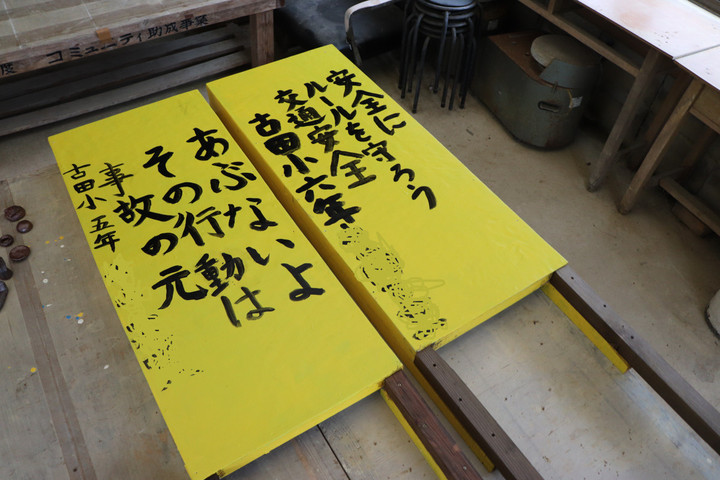 度 コミュニティ助成事業
安全に
ルールを守ろう
交通安全
古田小六年
あぶないよ
その行動は
事故の元
古田小 五年